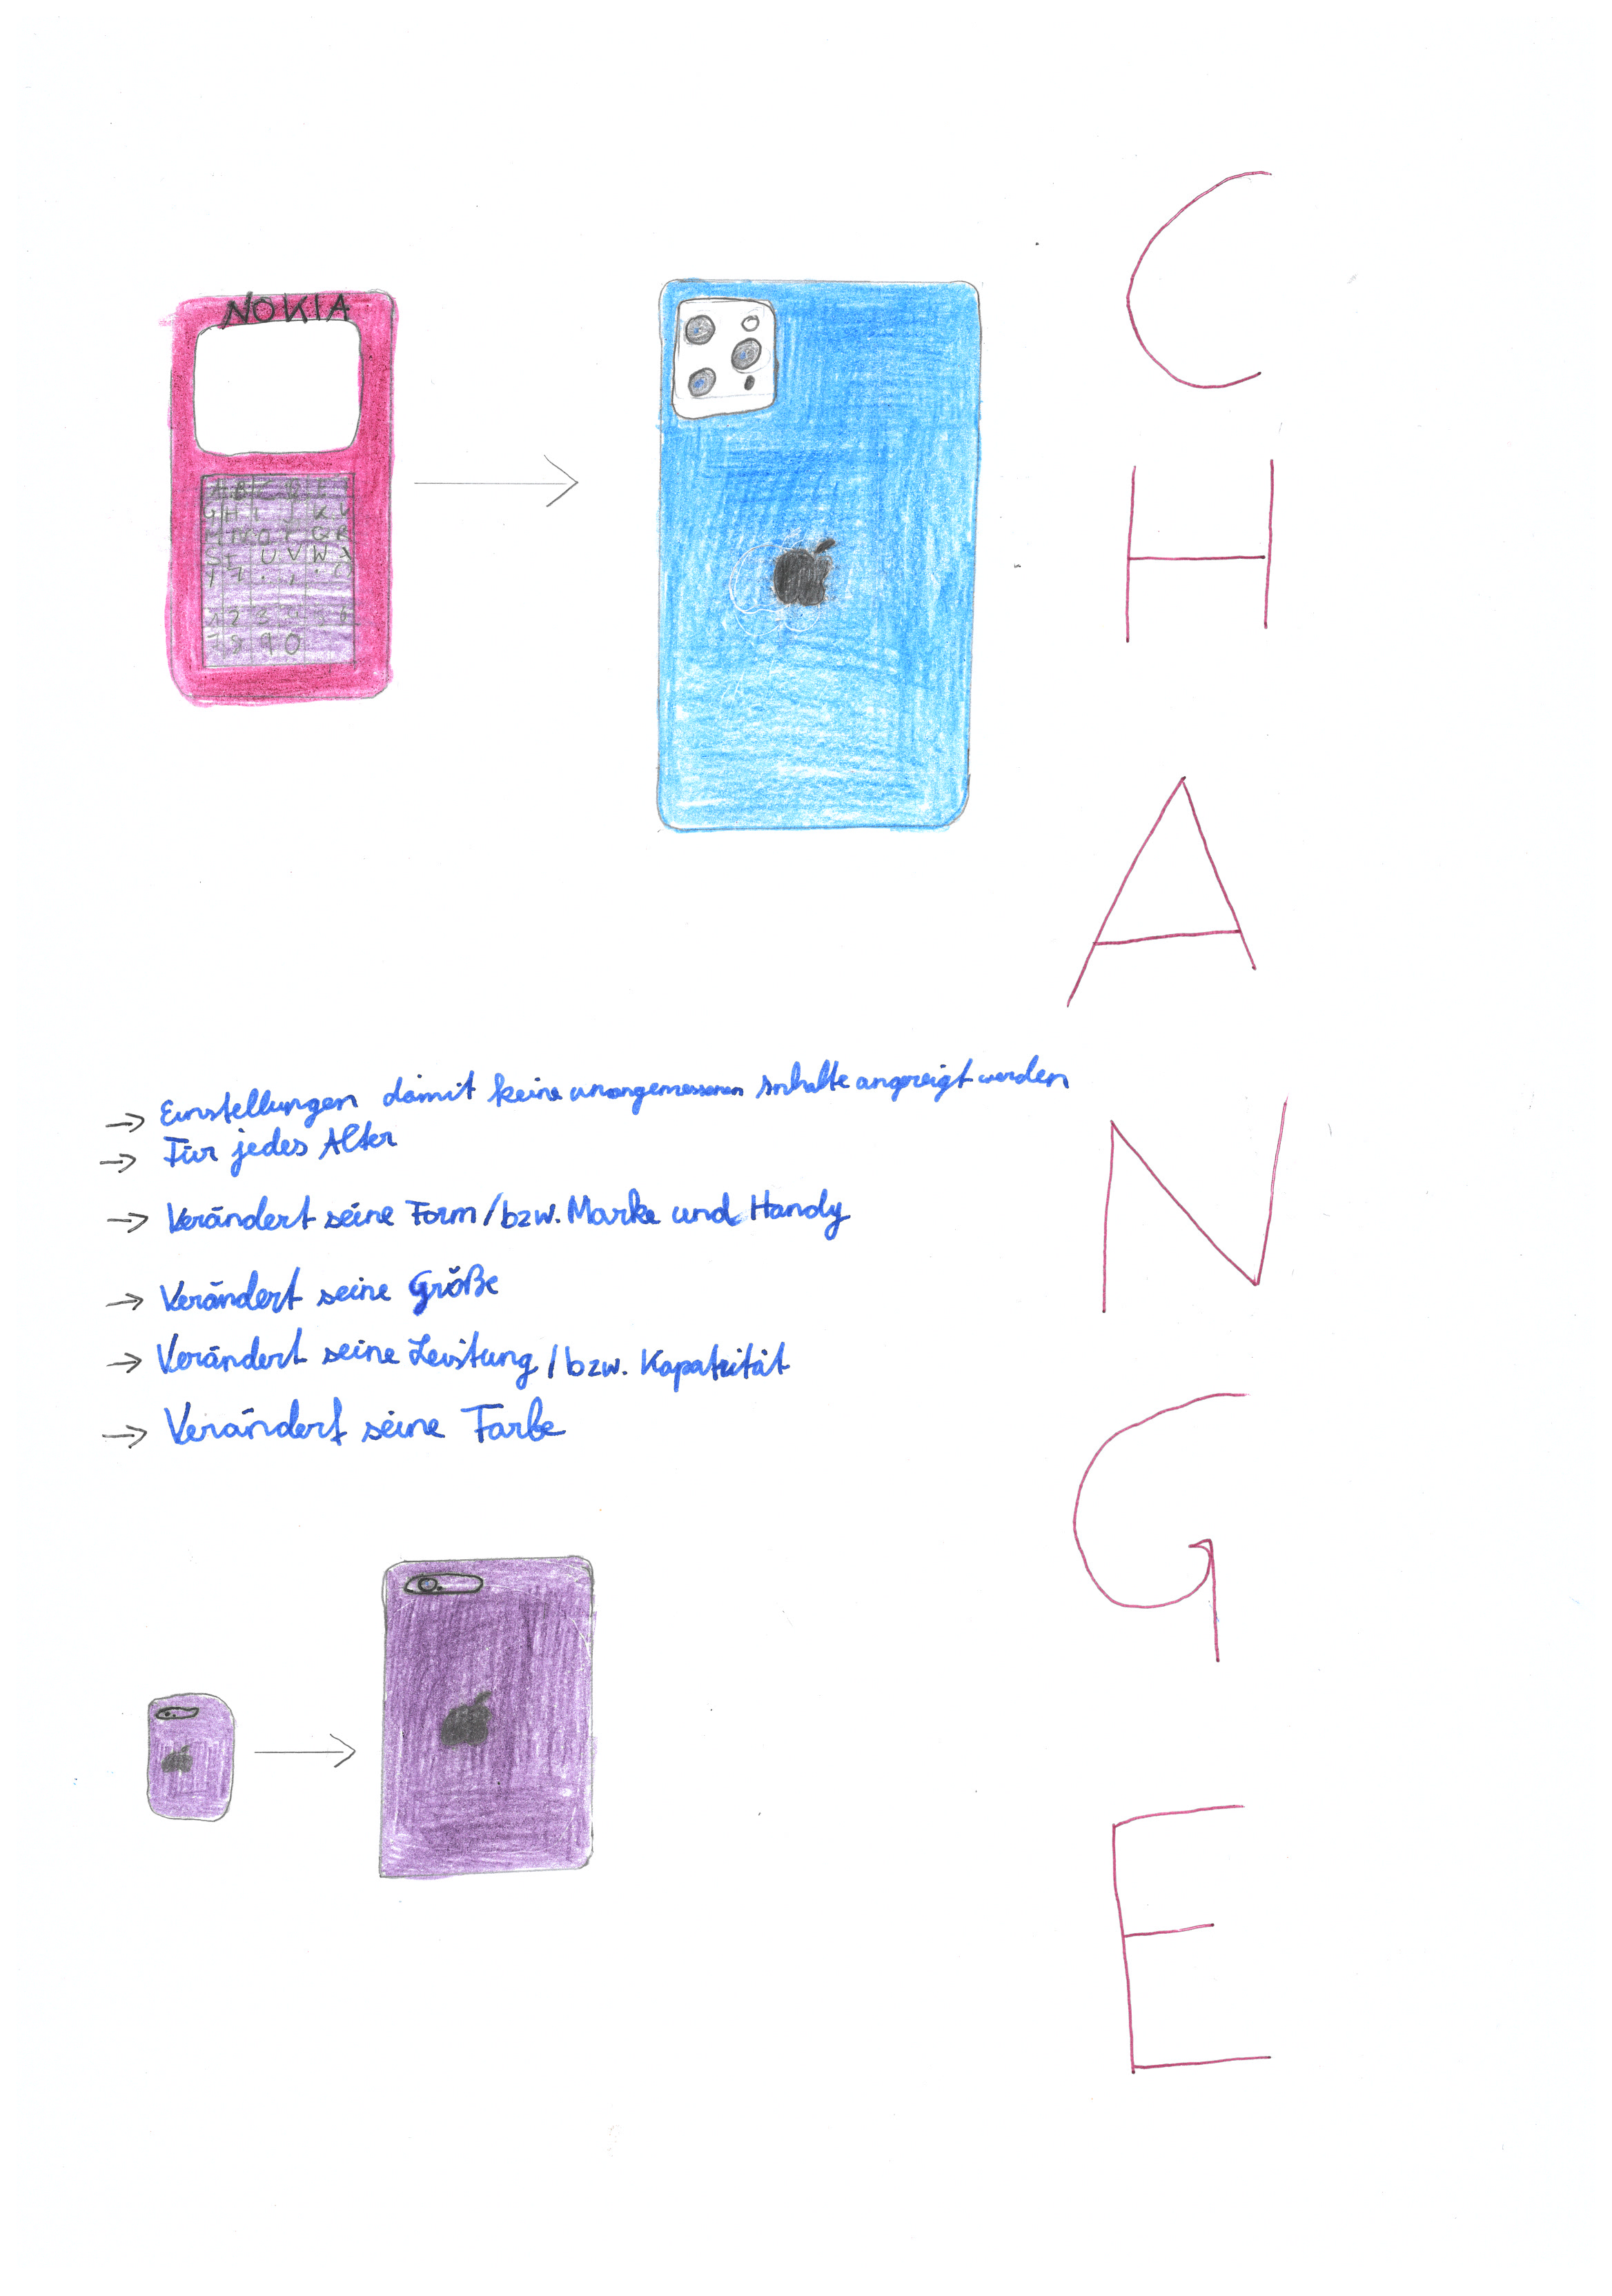 NOKIA
A B
G H I J K L
M N O P Q R
S T U V W X
Y Z
1 2 3 4 5 6
7 8 9 0
CHANGE
→ Einstellungen damit keine unangemessenen Inhalte angezeigt werden
→ Für jedes Alter
→ Verändert seine Form/bzw. Marke und Handy
→ Verändert seine Größe
→ Verändert seine Leistung/bzw. Kapatzität
→ Verändert seine Farbe